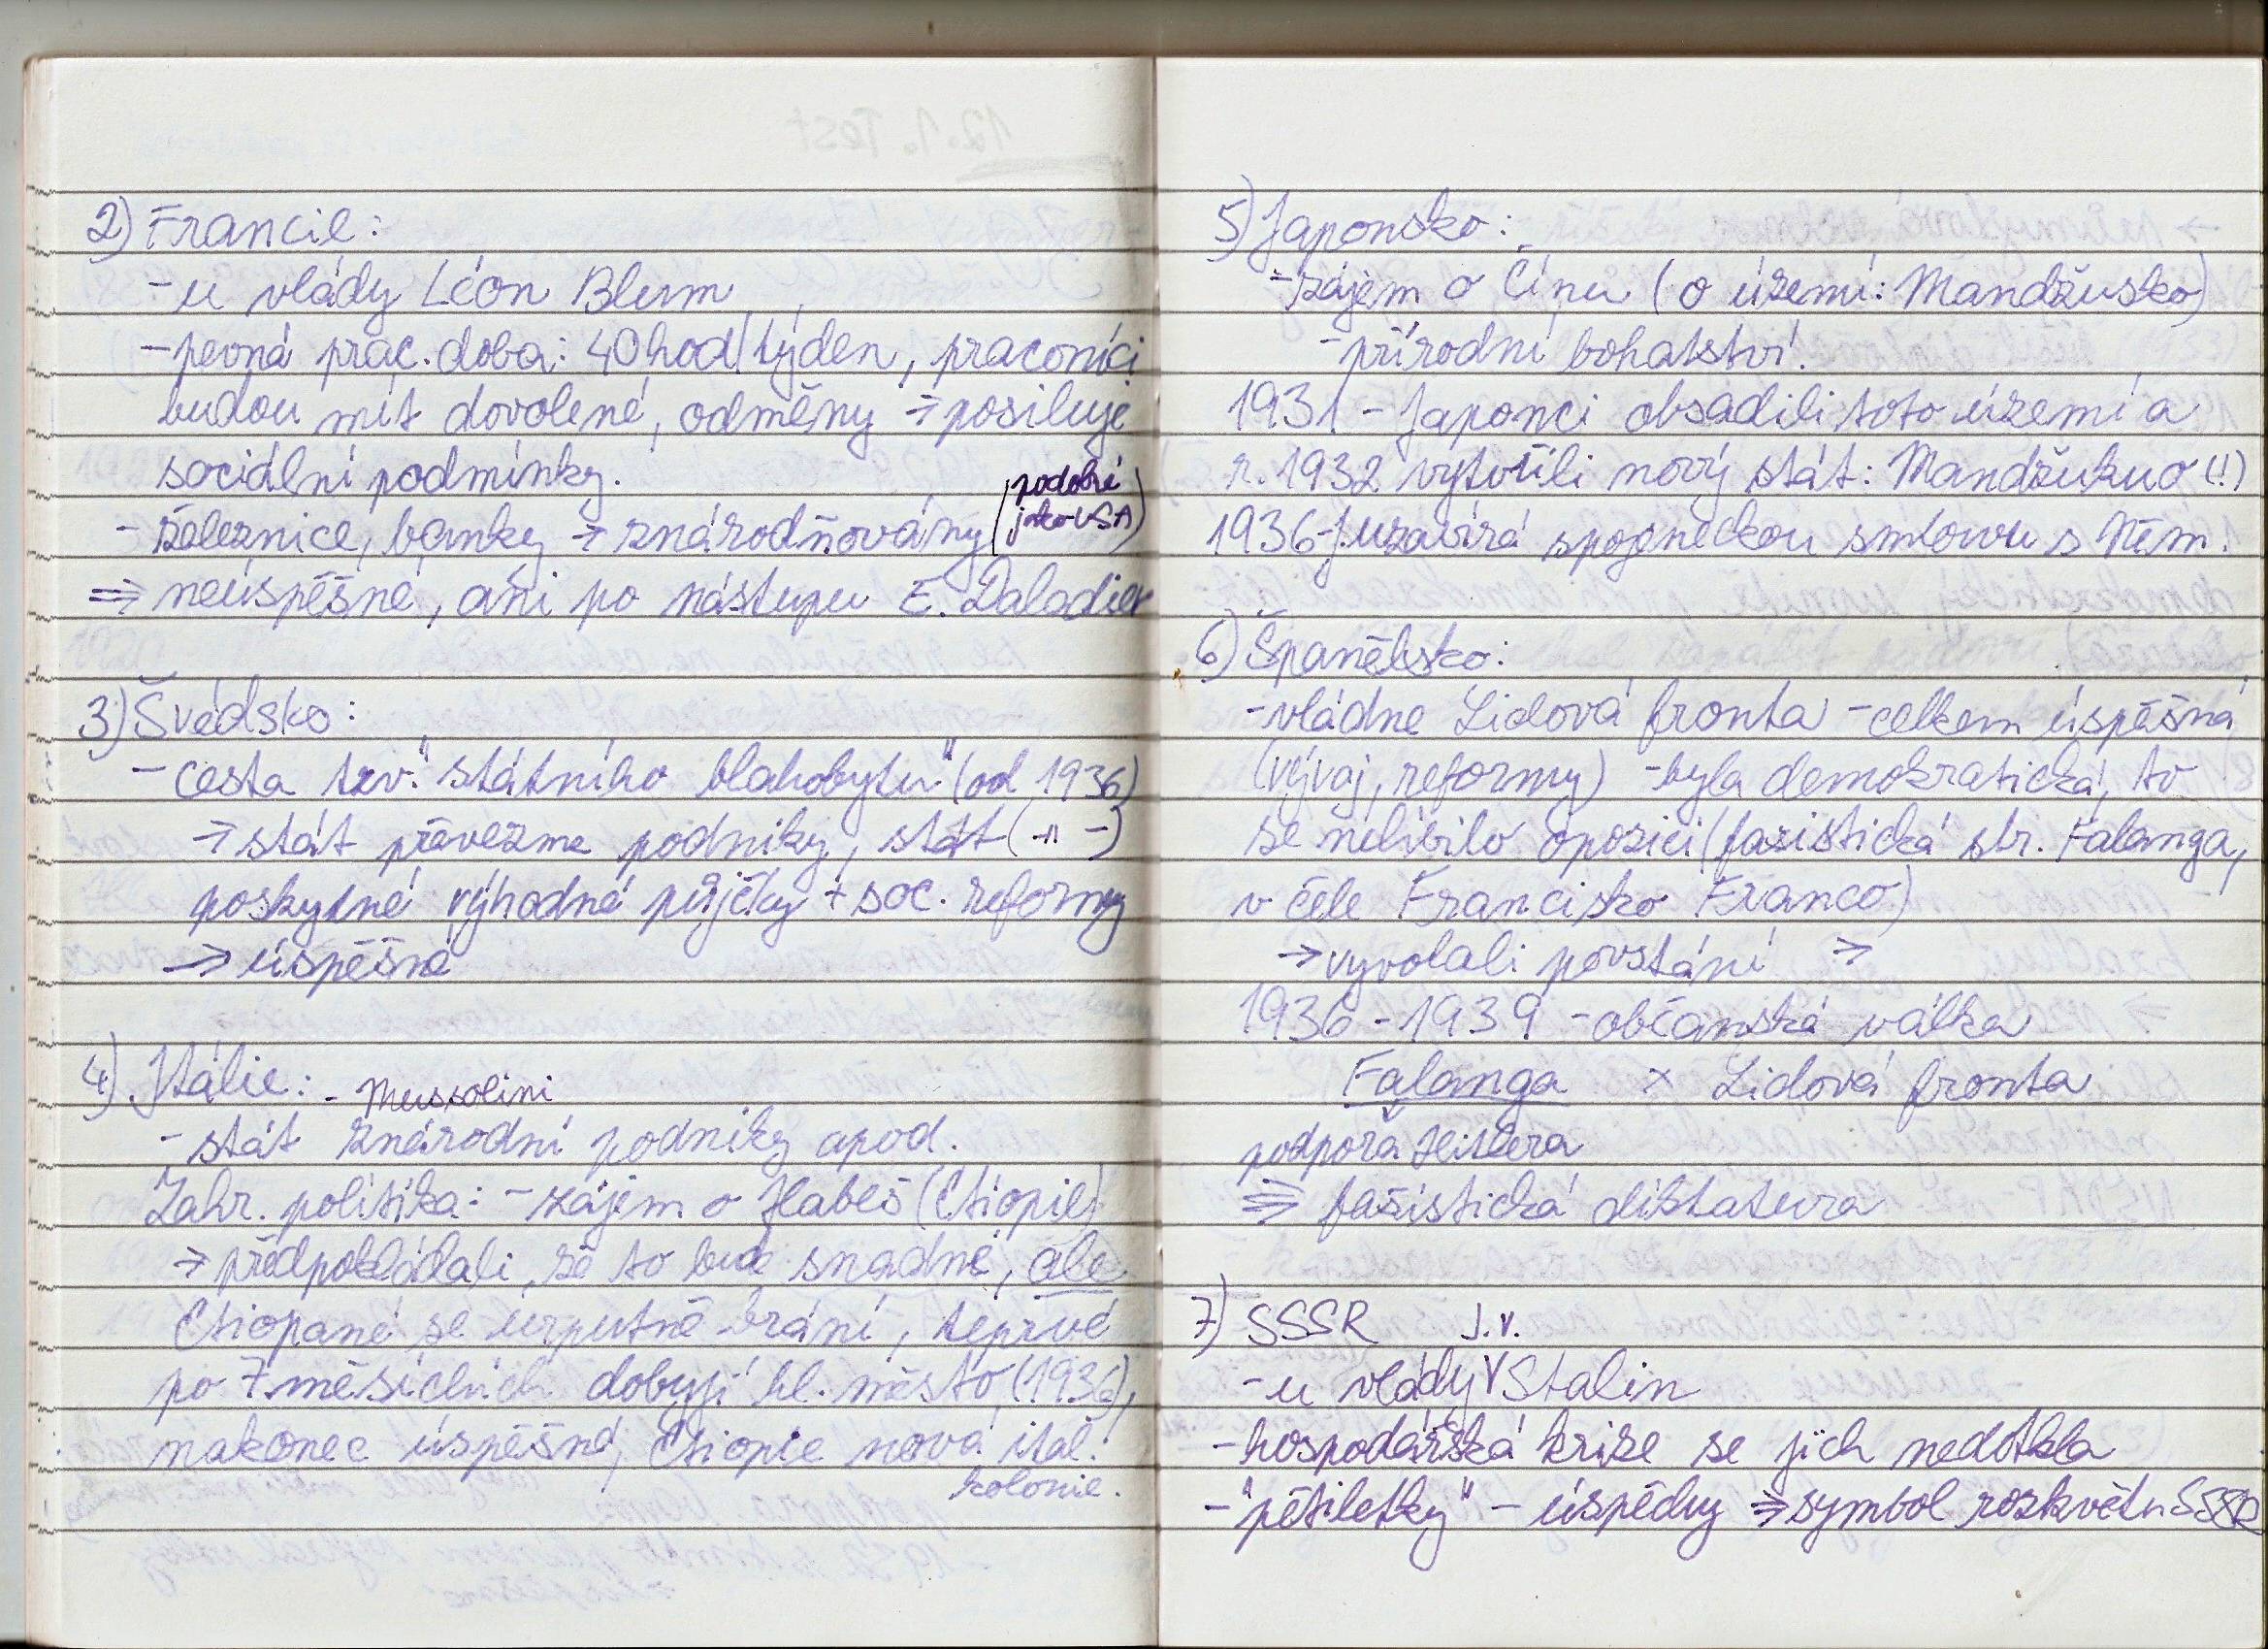 2) Francie:
- u vlády Léon Blum
- pevná prac. doba: 40hod/týden, pracovníci
budou mít dovolené, odměny → posiluje
sociální podmínky.
- železnice, banky → znárodňovány (podobné
jako USA)
⇒ neúspěšné, ani po nástupu E. Daladier
3) Švédsko:
- cesta tzv. "státního blahobytu" (od 1936)
→ stát převezme podniky, stát (-"-)
poskytne výhodné půjčky + soc. reformy
→ úspěšné
4) Itálie: - Mussolini
- stát znárodní podniky apod.
Zahr. politika: - zájem o Habeš (Etiopie)
→ předpokládali, že to bude snadné, ale
Etiopané se urputně brání, teprve
po 7 měsících dobyjí hl. město (1936),
nakonec úspěšné, Etiopie nová ital.
kolonie.
5) Japonsko:
- zájem o Čínu (o území: Mandžusko)
- přírodní bohatství.
1931 - Japonci obsadili toto území a
r. 1932 vytvořili nový stát: Mandžukuo (!)
1936 - J. uzavírá spojneckou smlouvu s Něm.
6) Španělsko:
- vládne Lidová fronta - celkem úspěšná
(vývoj, reformy) - byla demokratická, to
se nelíbilo opozici (fašistická str. Falanga,
v čele Francisko Franco)
→ vyvolali povstání →
1936 - 1939 - občanská válka
Falanga × Lidová fronta
podpora Hitlera
⇒ fašistická diktatura
7) SSSR
- u vlády J.V. Stalin
- hospodářská krize se jich nedotkla
- "pětiletky" - úspěchy ⇒ symbol rozkvětu SSSR